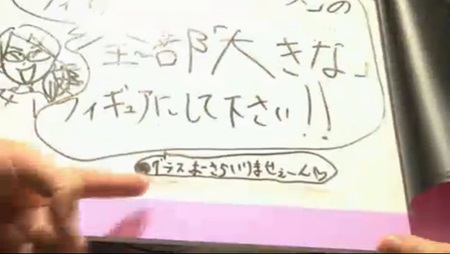 」の
全部「大きな」
フィギュアにして下さい!!
グラスおさらいりませぇーん♡